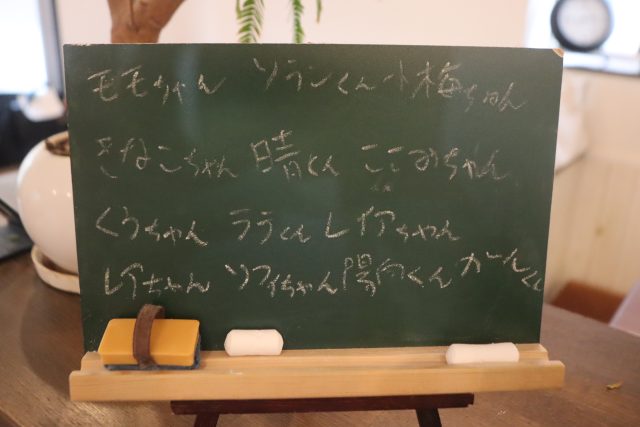 モモちゃん ソランくん 小梅ちゃん
きなこちゃん 晴くん ここみちゃん
くうちゃん ララくん レイアちゃん
レイちゃん ソフィちゃん 陽向くん オールくん